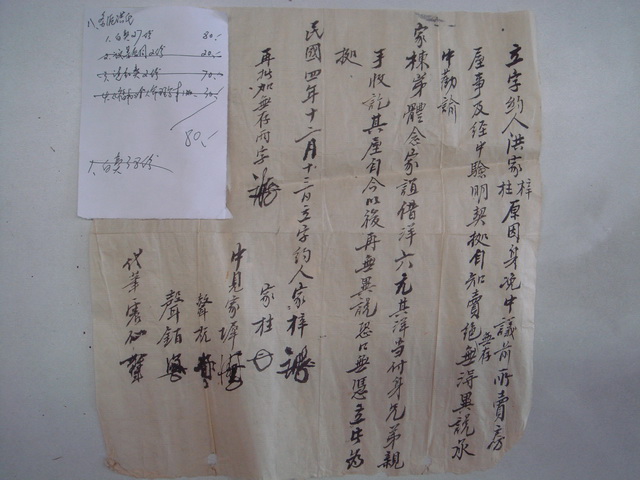 立字約人洪家梓桂原因身說中議前所賣房
屋事及经中驗明契據自知賣絕無存無得異說承
中勸諭
家棟弟體念家誼借洋六元其洋当付身兄弟親
手收訖其屋自今以後再無異說恐口無憑立此為
據
民國四年十二月十三日立字約人家梓
家桂
再批加無存兩字
中見家墀
聲杭
聲銷
代筆
80.-
20.-
70.-
80.-